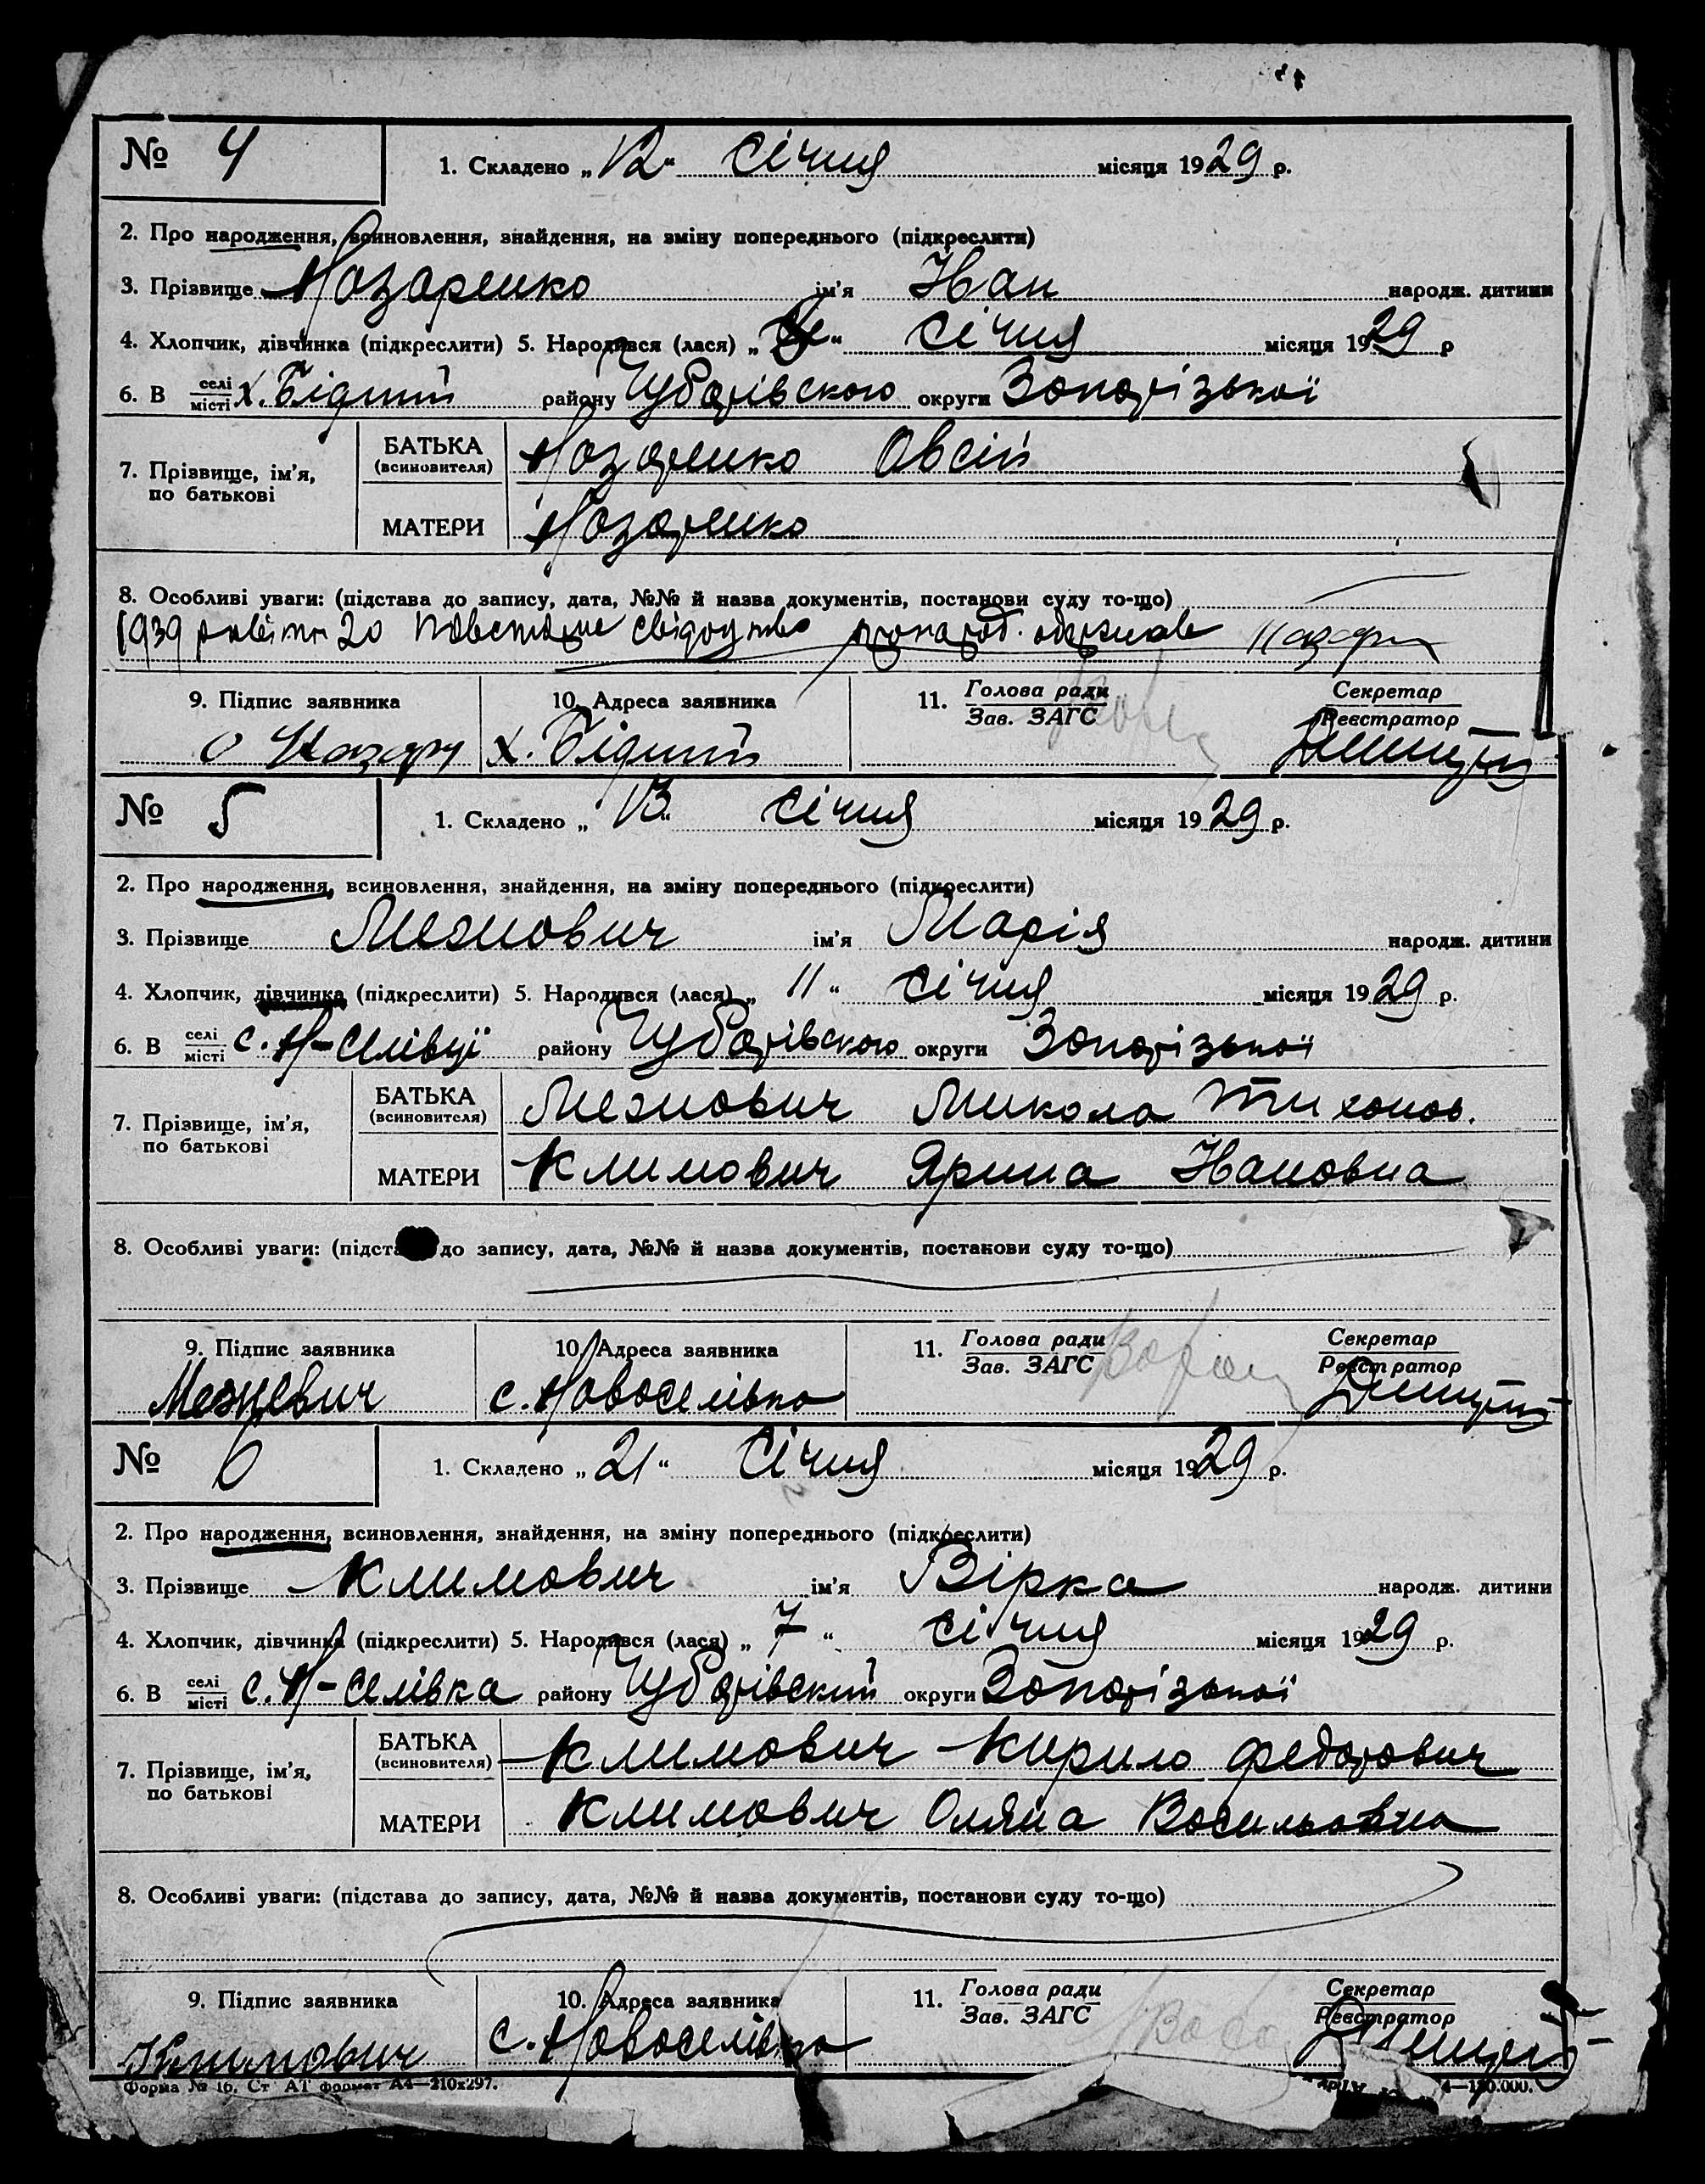 № 4
1. Складено „12“ Січня місяця 1929 р.
2. Про народження, всиновлення, знайдення, на зміну попереднього (підкреслити)
3. Прізвище Назаренко ім'я Иван народж. дитини
4. Хлопчик, дівчинка (підкреслити) 5. Народився (лася) „ “ Січня місяця 1929 р
6. В селі/місті х. Бідний району Чубарівського округи Запорізької
7. Прізвище, ім'я, по батькові
БАТЬКА (всиновителя) Назаренко Овсій
МАТЕРИ Назаренко
8. Особливі уваги: (підстава до запису, дата, №№ й назва документів, постанови суду то-що)
1939 20 свідоцтво
9. Підпис заявника 10. Адреса заявника 11. Голова ради Секретар
Зав. ЗАГС Реєстратор
х. Бідний
№ 5
1. Складено „13“ Січня місяця 1929 р.
2. Про народження, всиновлення, знайдення, на зміну попереднього (підкреслити)
3. Прізвище Мезнович ім'я Марія народж. дитини
4. Хлопчик, дівчинка (підкреслити) 5. Народився (лася) „11“ Січня місяця 1929 р.
6. В селі/місті с. Н-Селівці району Чубарівського округи Запорізької
7. Прізвище, ім'я, по батькові
БАТЬКА (всиновителя) Мезнович Микола Тихонов.
МАТЕРИ Климович Ярина Ивановна
8. Особливі уваги: (підстава до запису, дата, №№ й назва документів, постанови суду то-що)
9. Підпис заявника 10. Адреса заявника 11. Голова ради Секретар
Зав. ЗАГС Реєстратор
с. Новоселівка
№ 6
1. Складено „21“ Січня місяця 1929 р.
2. Про народження, всиновлення, знайдення, на зміну попереднього (підкреслити)
3. Прізвище Климович ім'я Вірка народж. дитини
4. Хлопчик, дівчинка (підкреслити) 5. Народився (лася) „7“ Січня місяця 1929 р.
6. В селі/місті с. Н-Селівка району Чубарівский округи Запорізької
7. Прізвище, ім'я, по батькові
БАТЬКА (всиновителя) Климович Кирило Федорович
МАТЕРИ Климович Оляна Васильовна
8. Особливі уваги: (підстава до запису, дата, №№ й назва документів, постанови суду то-що)
9. Підпис заявника 10. Адреса заявника 11. Голова ради Секретар
Зав. ЗАГС Реєстратор
Климович с. Новоселівка
Форма № 16. Ст АТ формат А4—210х297.